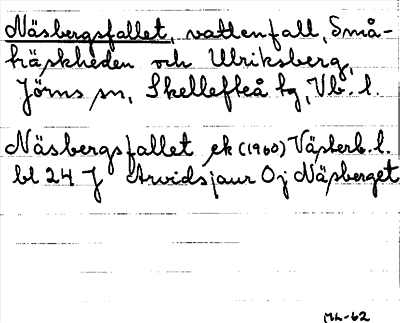 Näsbergsfallet, vattenfall, Små-
träskheden och Ulriksberg,
Jörns sn, Skellefteå tg, Vb. l.
Näsbergsfallet ek (1960) Västerb. l.
bl 24 J Arvidsjaur Oj Näsberget